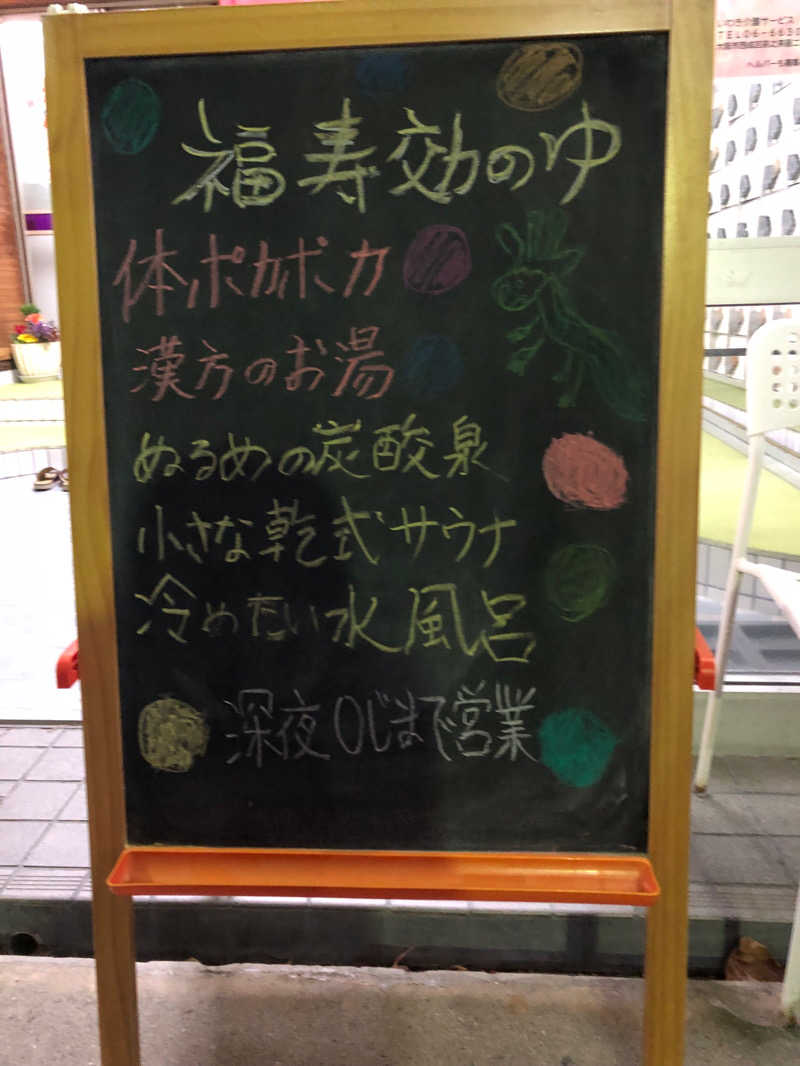 福寿効のゆ
体ポカポカ
漢方のお湯
ぬるめの炭酸泉
小さな乾式サウナ
冷めたい水風呂
深夜0じまで営業
TEL06-6630